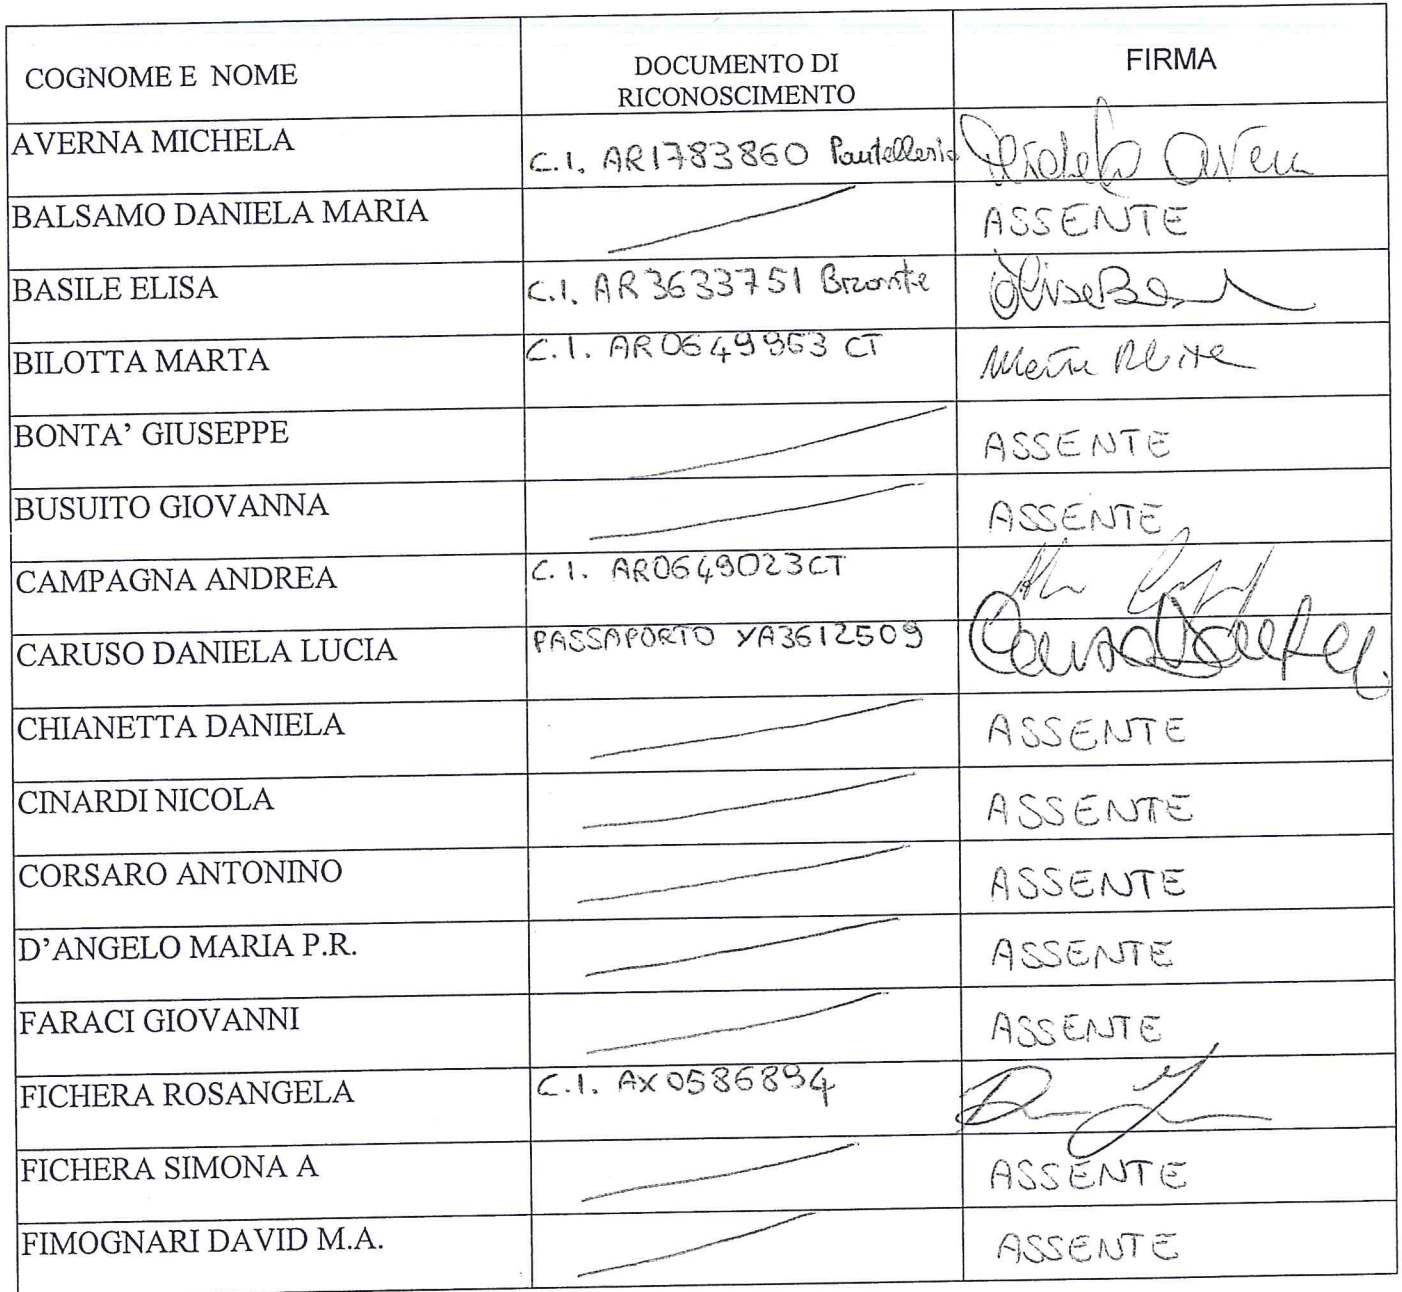 COGNOME E NOME
DOCUMENTO DI
RICONOSCIMENTO
FIRMA
AVERNA MICHELA C.I. AR1783860 Pantelleria
BALSAMO DANIELA MARIA ASSENTE
BASILE ELISA C.I. AR3633751
BILOTTA MARTA C.I. AR0649953 CT
BONTA’ GIUSEPPE ASSENTE
BUSUITO GIOVANNA ASSENTE
CAMPAGNA ANDREA C.I. AR0649023CT
CARUSO DANIELA LUCIA PASSAPORTO YA3612509
CHIANETTA DANIELA ASSENTE
CINARDI NICOLA ASSENTE
CORSARO ANTONINO ASSENTE
D’ANGELO MARIA P.R. ASSENTE
FARACI GIOVANNI ASSENTE
FICHERA ROSANGELA C.I. AX0586894
FICHERA SIMONA A ASSENTE
FIMOGNARI DAVID M.A. ASSENTE